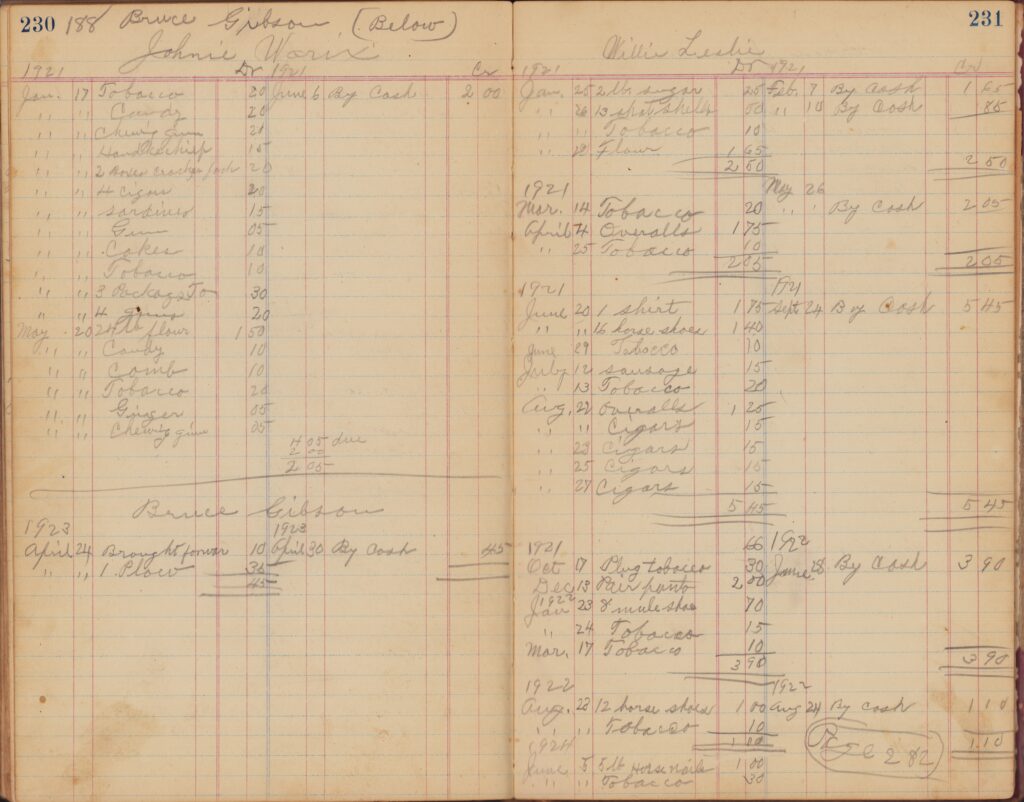 230 188 Bruce Gibson (Below)
Johnie Warix
1921 Dr 1921 Cr
Jan. 17 Tobacco 20 June 6 By Cash 2 00
" " Candy 20
" " Chewig gum 21
" " Handkechief 15
" " 2 boxes cracker jack 20
" " 4 Cigars 20
" " Sardines 15
" " Gum 05
" " Cakes 10
" " Tobacco 10
" " 3 Packags To 30
" " 4 20
May 20 24 lb flour 1 50
" " Candy 10
" " Comb 10
" " Tobacco 20
" " Ginger 05
" " Chewig gum 05
4 05 due
2 00
2 05
Bruce Gibson
1923 1923
April 24 Brought forwar 10 April 30 By Cash 45
" " 1 Plow 35
45
231
Willie Leslie
1921 Dr 1921 Cr
Jan. 25 2 lb sugar 25 Feb. 7 By Cash 1 65
" 26 13 shot shells 50 " 10 By Cash 85
" " Tobacco 10
" 28 Flour 1 65
2 50 2 50
1921 May 26
Mar. 14 Tobacco 20 " " By Cash 2 05
April 4 Overalls 1 75
" 25 Tobacco 10
2 05 2 05
1921 1921
June 20 1 shirt 1 75 Sept 24 By Cash 5 45
" " 16 horse shoes 1 40
June 29 Tobacco 10
July 12 sausage 15
" 13 Tobacco 20
Aug. 22 Overalls 1 25
" " Cigars 15
" 23 Cigars 15
" 25 Cigars 15
" 27 Cigars 15
5 45 5 45
1921 66 1922
Oct 17 Plug tobacco 30 June 28 By Cash 3 90
Dec 13 Pair pants 2 00
1922
Jan 23 8 mule shoe 70
" 24 Tobacco 15
Mar. 17 Tobacco 10
3 90 3 90
1922 1922
Aug. 23 12 horse shoes 1 00 Aug 24 By Cash 1 10
" " Tobacco 10
1 10 1 10
1924 282
June 5 5 lb Horse nails 1 00
" " Tobacco 30